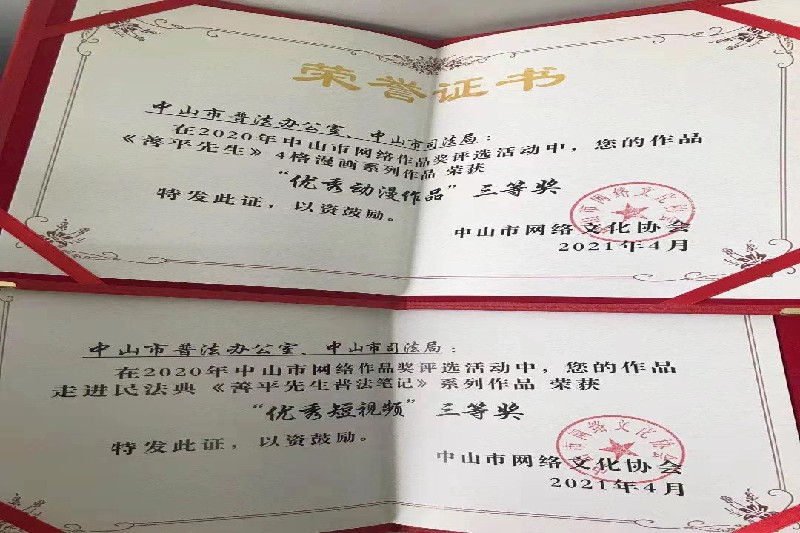 荣誉证书
中山市普法办公室、中山市司法局：
在2020年中山市网络作品奖评选活动中，您的作品
《善平先生》4格漫画系列作品 荣获
“优秀动漫作品” 三等奖
特发此证，以资鼓励。
中山市网络文化协会
2021年4月
中山市网络文化协会
中山市普法办公室、中山市司法局：
在2020年中山市网络作品奖评选活动中，您的作品
走进民法典《善平先生普法笔记》系列作品 荣获
“优秀短视频” 三等奖
特发此证，以资鼓励。
中山市网络文化协会
2021年4月
中山市网络文化协会